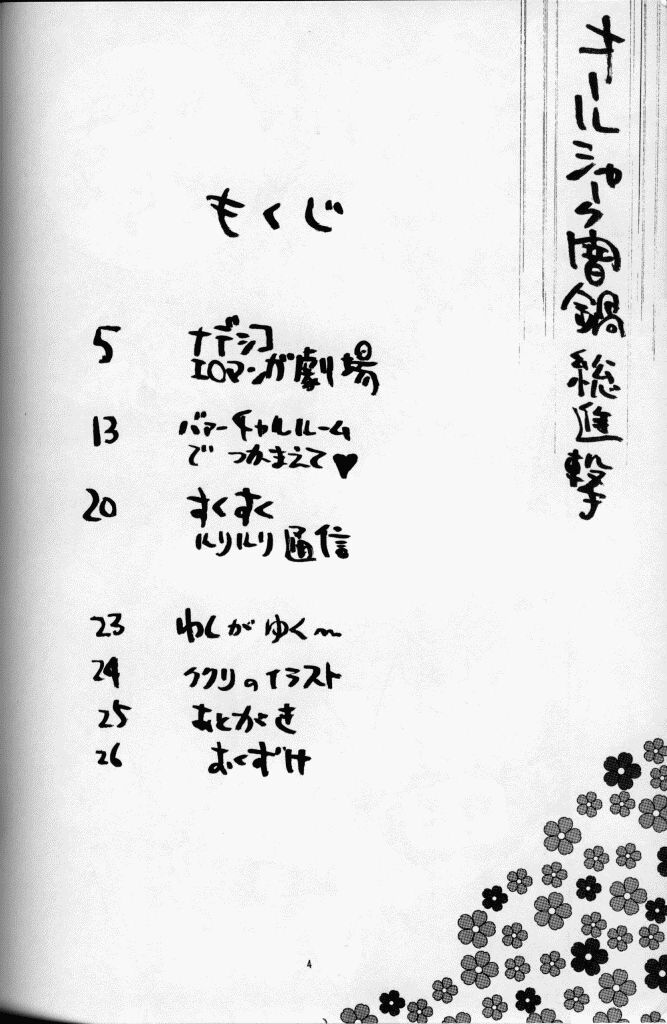 オールジャーク闇鍋総進撃
もくじ
5 ナデシコ
エロマンガ劇場
13 バァーチャルルーム
でつかまえて♥
20 すくすく
ルリルリ通信
23 わしがゆく〜
24 ククリのイラスト
25 あとがき
26 おくずけ
4